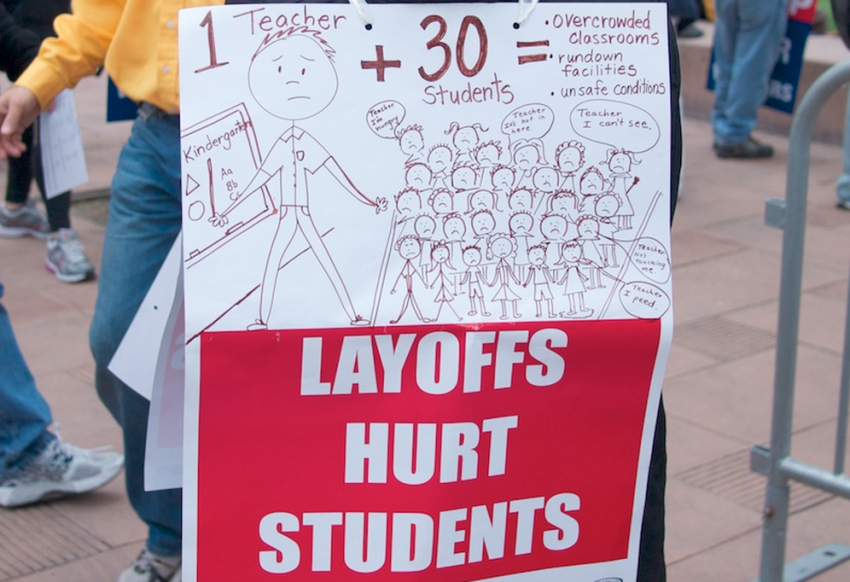 1 Teacher + 30 Students =
• overcrowded
classrooms
• rundown
facilities
• unsafe conditions
Kindergarten
Aa
Bb
Cc
Teacher
I'm
hungry
Teacher
It's hot in
here.
Teacher
I can't see.
Teacher
He's
touching
me.
Teacher
I peed
LAYOFFS
HURT
STUDENTS